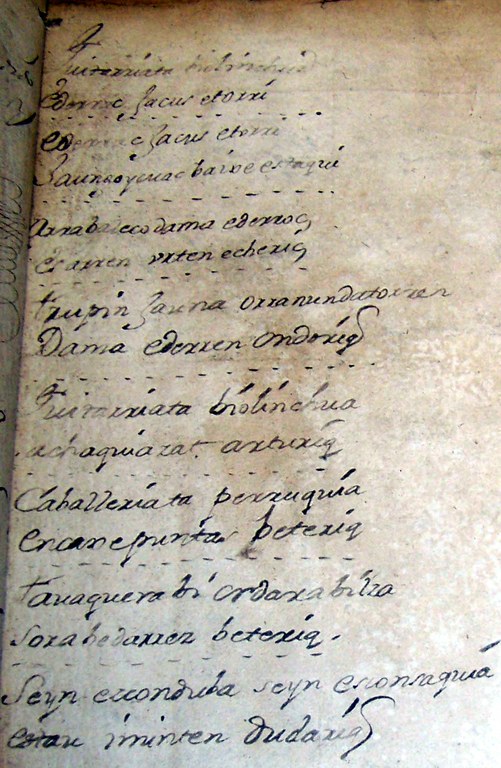 Guitarriata biolinchua
Ederrac Jacus etorri
ederrac Jacus etorri
Jaungoycuac baloe estaqui
Arrabaleco dama ederroc
esarren vrten echeriq
trupin Jauna orra nundatorren
Dama ederren Ondoriq
Guitarriata biolinchua
achaquiazat arturiq
Caballeriata perruquia
encanepuntas beteriq
Tauaquera bi ordarabilza
sorabedarrez beteriq.
Seyn esconduba seyn esconsaquia
estau iminten dudariq